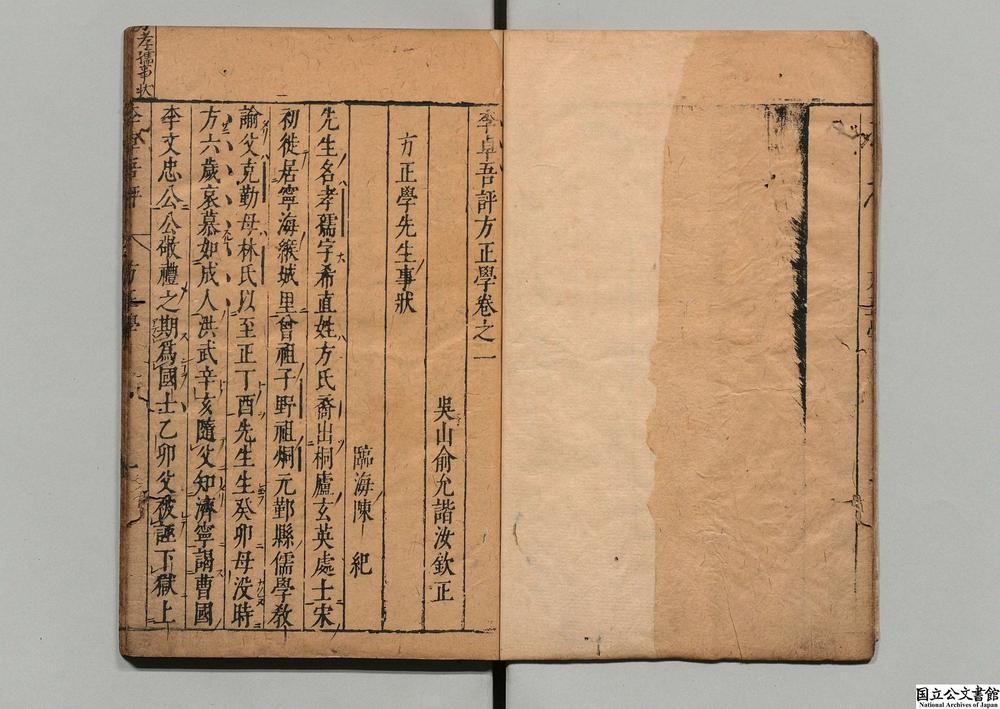 李卓吾評方正學卷之一
吳山俞允諧汝欽正
方正學先生事狀
臨海陳 紀
先生名孝孺字希直姓方氏裔出桐廬玄英處士宋
初徙居寧海緱城里曾祖子野祖烱元鄞縣儒學教
諭父克勤母林氏以至正丁酉先生生癸卯母没時
方六歲哀慕如成人洪武辛亥隨父知濟寧謁曹國
李文忠公公敬禮之期爲國士乙卯父被誣下獄上
方孝孺事狀
国立公文書館
National Archives of Japan